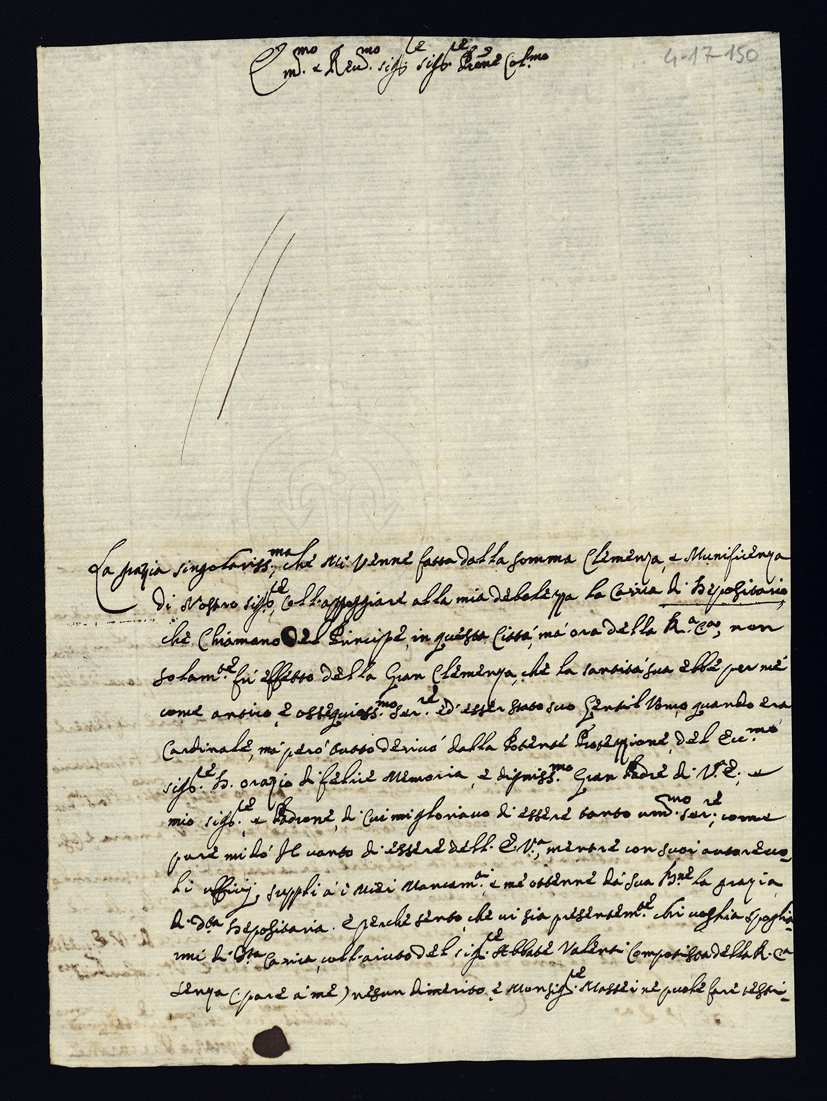 4-17-150
Em.mo e Reu.mo sig.re sig.re Prone Col.mo
La grazia singolariss.ma, che mi venne fatta dalla somma Clemenza, e Munificenza
di Nostro sig.re, coll'appoggiare alla mia debolezza la Carica di Depositario,
che Chiamano del Principe, in questa Città, mà ora della R.a C.a, non
solam.te fù effetto della Gran Clemenza, che la santità sua ebbe per mè
come antico, è ossequioss.mo ser.re ed'esser stato suo Gentil Vomo, quando era
Cardinale, mà però tutto derivò dalla Potente Protezzione, del Ecc.mo
sig.re D. orazio di felice Memoria, e digniss.mo Gran Padre di V.ra E., e
mio sig.re, e Padrone, di cui mi gloriavo di essere tanto um.mo ser.re, come
pure mi dó Il vanto di essere dell'E. V.ra, mentre con suoi autorevo,
li uffizij, supplì à i miei Mancam.ti, e me ottenne dà sua B.ne la grazia
di d.ta Depositaria. e perche sento, che vi sia presentem.te chi voglia spoglia-
rmi di d.ta Carica, coll'aiuto del sig.re Abbate Valenti Computista della R. C.a
senza (pare à mè) nesun dimerito, e Monsig.re Massei ne puole fare testi-